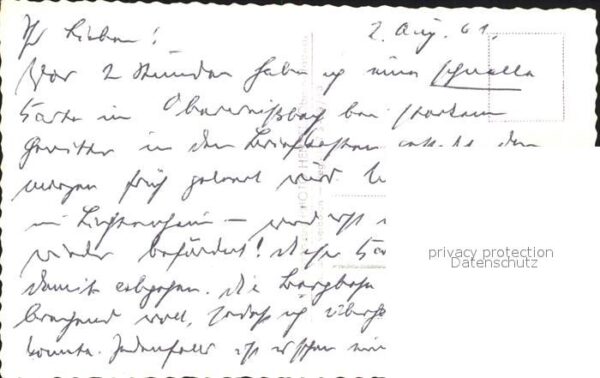 Ihr Lieben! 2. Aug. 61.
Vor 2 Stunden habe ich eine schnelle
Karte in Oberweißbach bei starkem
Gewitter in den Briefkasten
morgen früh geleert wird
in Lichtenhain — und erst
wieder befördert! Diese
damit abgehen. Die Bergbahn
brechend voll, sodaß ich
konnte. Jedenfalls ist es schon
privacy protection
Datenschutz